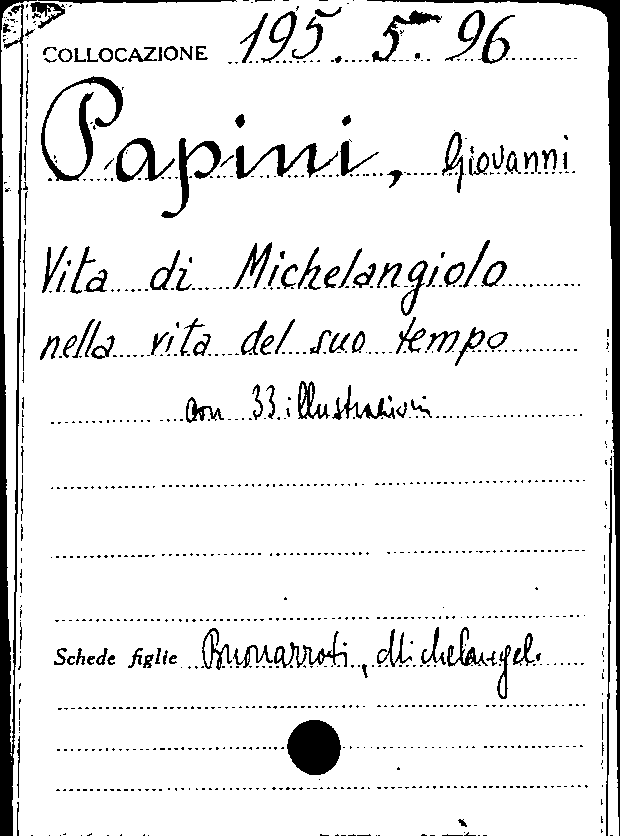 COLLOCAZIONE 195. 5. 96
Papini, Giovanni
Vita di Michelangiolo
nella vita del suo tempo
con 33 illustrazioni
Schede figlie Buonarroti, Michelangel.